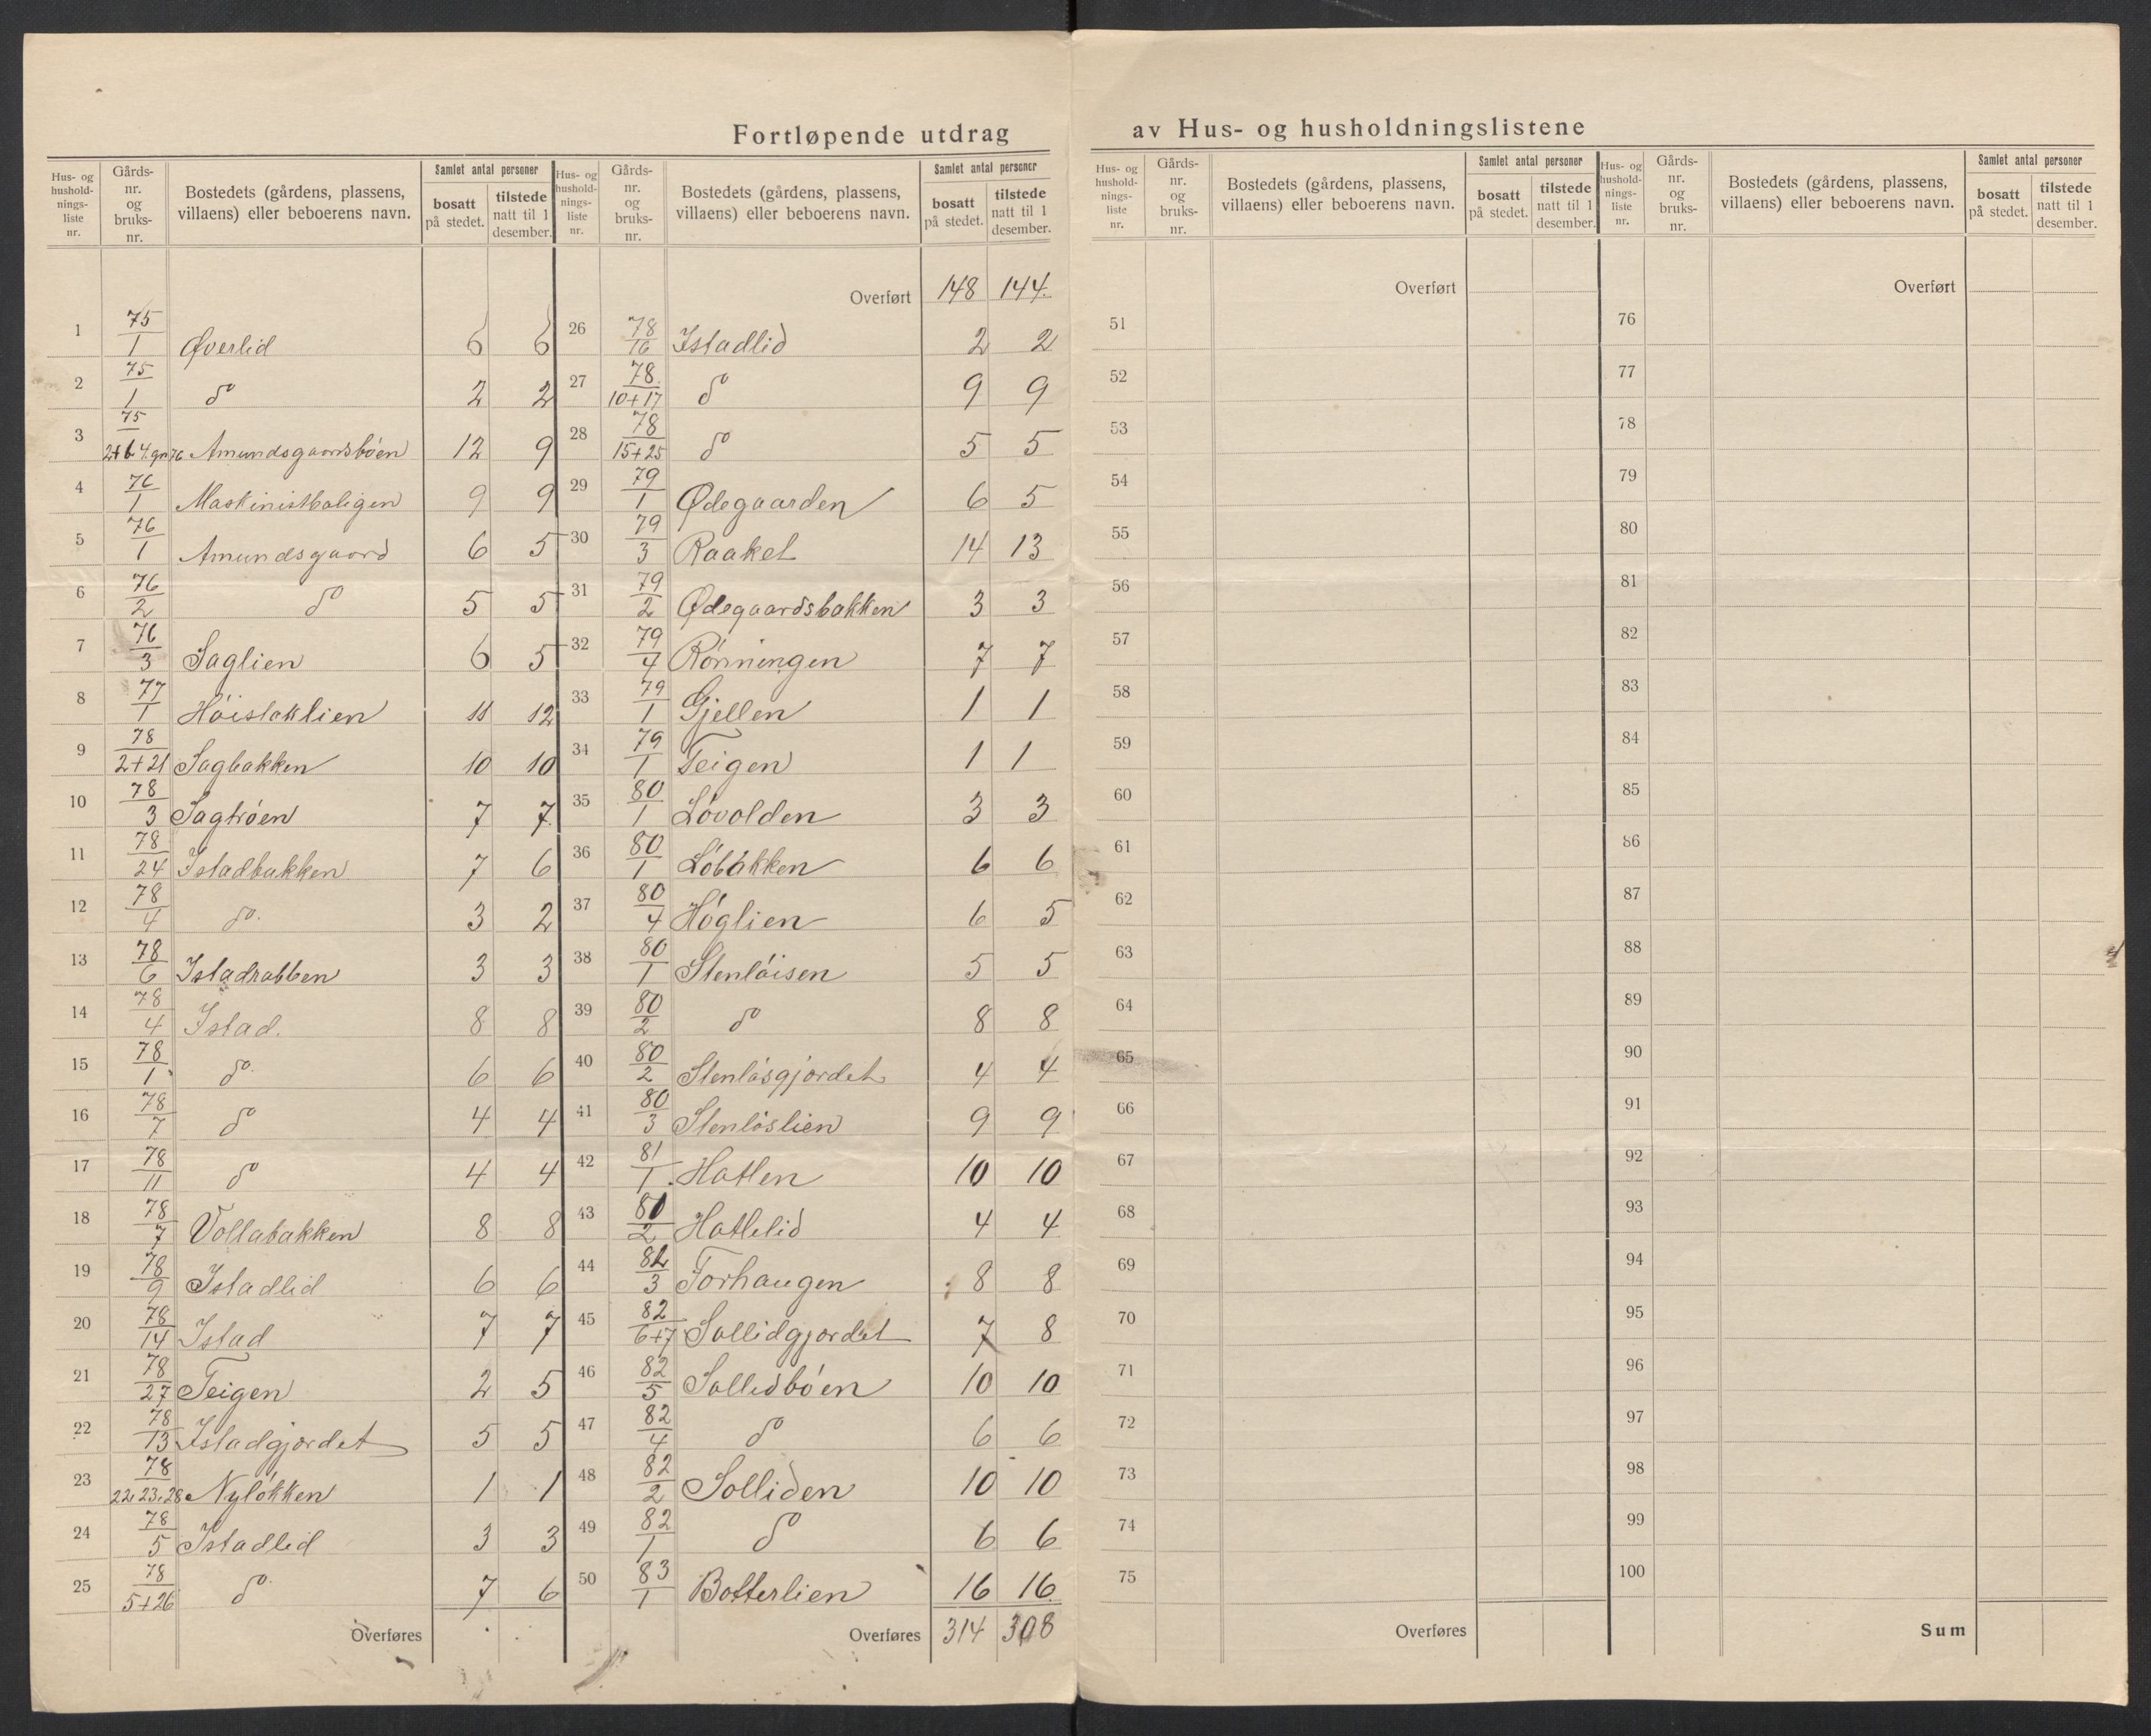 Fortløpende utdrag av Hus- og husholdningslistene
Hus- og hushold-nings-liste nr. | Gårds-nr. og bruks-nr. | Bostedets (gårdens, plassens, villaens) eller beboerens navn. | Samlet antal personer | bosatt på stedet. | tilstede natt til 1 desember.
1 75/1 Øverlid 6 6
2 75/1 do 2 2
3 75/2+6 4.gn 76 Amundsgaardsbøen 12 9
4 76/1 Maskinistboligen 9 9
5 76/1 Amundsgaard 6 5
6 76/2 do 5 5
7 76/3 Saglien 6 5
8 77/1 Høistaklien 11 12
9 78/2+21 Sagbakken 10 10
10 78/3 Sagtrøen 7 7
11 78/24 Istadbakken 7 6
12 78/4 do. 3 2
13 78/6 Istadrabben 3 3
14 78/4 Istad. 8 8
15 78/1 do. 6 6
16 78/7 do 4 4
17 78/11 do 4 4
18 78/7 Vollabakken 8 8
19 78/9 Istadlid 6 6
20 78/14 Istad 7 7
21 78/27 Teigen 2 5
22 78/13 Istadgjordet 5 5
23 78/22.23.28 Nyløkken 1 1
24 78/5 Istadlid 3 3
25 78/5+26 do. 7 6
Overføres
Hus- og hushold-nings-liste nr. | Gårds-nr. og bruks-nr. | Bostedets (gårdens, plassens, villaens) eller beboerens navn. | Samlet antal personer | bosatt på stedet. | tilstede natt til 1 desember.
Overført 148 144.
26 78/16 Istadlid 2 2
27 78/10+17 do 9 9
28 78/15+25 do 5 5
29 79/1 Ødegaarden 6 5
30 79/3 Raaket 14 13
31 79/2 Ødegaardsbakken 3 3
32 79/4 Rønningen 7 7
33 79/1 Gjellen 1 1
34 79/1 Teigen 1 1
35 80/1 Løvolden 3 3
36 80/1 Løbakken 6 6
37 80/4 Høglien 6 5
38 80/1 Stenløisen 5 5
39 80/2 do 8 8
40 80/2 Stenløsgjordet 4 4
41 80/3 Stenløslien 9 9
42 81/1 Hatlen 10 10
43 81/2 Hatlelid 4 4
44 82/3 Torhaugen 8 8
45 82/6+7 Sollidgjordet 7 8
46 82/5 Sollidbøen 10 10
47 82/4 do 6 6
48 82/2 Solliden 10 10
49 82/1 do 6 6
50 83/1 Botterlien 16 16
Overføres 314 308
Hus- og hushold-nings-liste nr. | Gårds-nr. og bruks-nr. | Bostedets (gårdens, plassens, villaens) eller beboerens navn. | Samlet antal personer | bosatt på stedet. | tilstede natt til 1 desember.
Overført
51
52
53
54
55
56
57
58
59
60
61
62
63
64
65
66
67
68
69
70
71
72
73
74
75
Overføres
Hus- og hushold-nings-liste nr. | Gårds-nr. og bruks-nr. | Bostedets (gårdens, plassens, villaens) eller beboerens navn. | Samlet antal personer | bosatt på stedet. | tilstede natt til 1 desember.
Overført
76
77
78
79
80
81
82
83
84
85
86
87
88
89
90
91
92
93
94
95
96
97
98
99
100
Sum